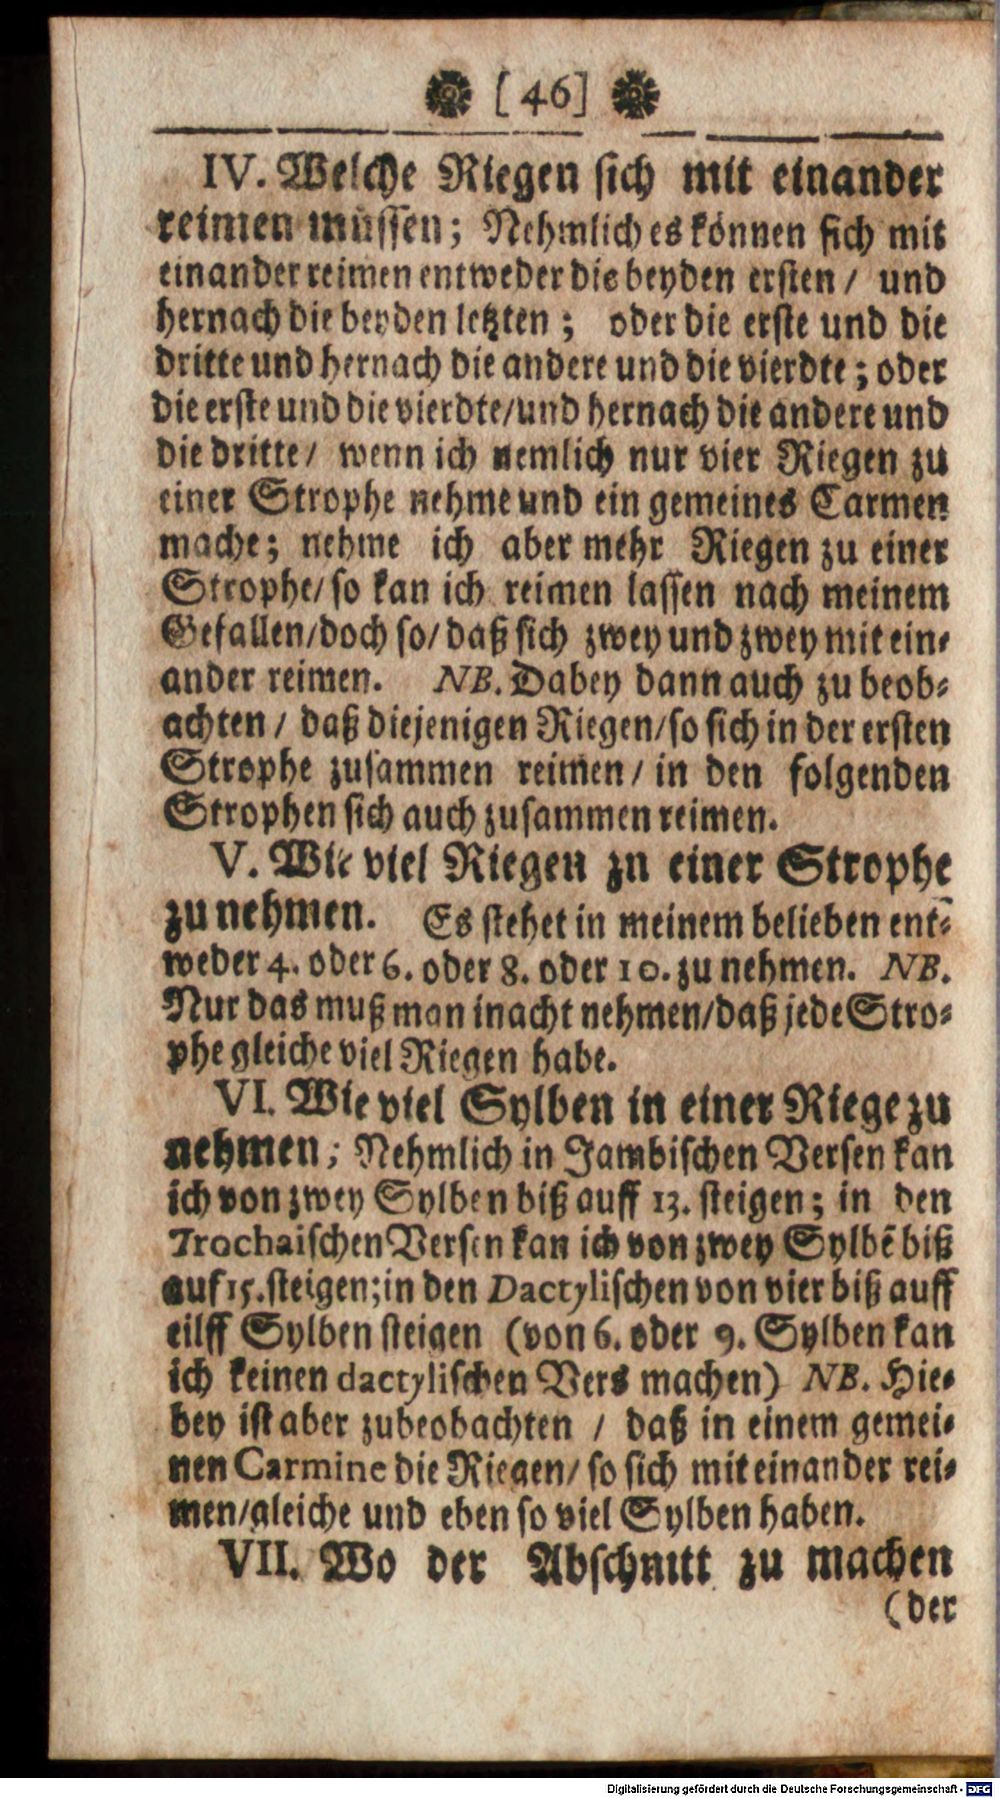 [46]
IV. Welche Riegen sich mit einander
reimen müssen; Nehmlich es können sich mit
einander reimen entweder die beyden ersten / und
hernach die beyden letzten; oder die erste und die
dritte und hernach die andere und die vierdte; oder
die erste und die vierdte/und hernach die andere und
die dritte/ wenn ich nemlich nur vier Riegen zu
einer Strophe nehme und ein gemeines Carmen
mache; nehme ich aber mehr Riegen zu einer
Strophe/so kan ich reimen lassen nach meinem
Gefallen/doch so/daß sich zwey und zwey mit ein-
ander reimen. NB. Dabey dann auch zu beob-
achten / daß diejenigen Riegen/so sich in der ersten
Strophe zusammen reimen/in den folgenden
Strophen sich auch zusammen reimen.
V. Wie viel Riegen zu einer Strophe
zu nehmen. Es stehet in meinem belieben ent-
weder 4. oder 6. oder 8. oder 10. zu nehmen. NB.
Nur das muß man inacht nehmen/daß jede Stro-
phe gleiche viel Riegen habe.
VI. Wie viel Sylben in einer Riege zu
nehmen; Nehmlich in Jambischen Versen kan
ich von zwey Sylben biß auff 13. steigen; in den
Trochaischen Versen kan ich von zwey Sylbē biß
auf 15. steigen; in den Dactylischen von vier biß auff
eilff Sylben steigen (von 6. oder 9. Sylben kan
ich keinen dactylischen Vers machen) NB. Hie-
bey ist aber zubeobachten / daß in einem gemei-
nen Carmine die Riegen/so sich mit einander rei-
men/gleiche und eben so viel Sylben haben.
VII. Wo der Abschnitt zu machen
(der
Digitalisierung gefördert durch die Deutsche Forschungsgemeinschaft - DFG